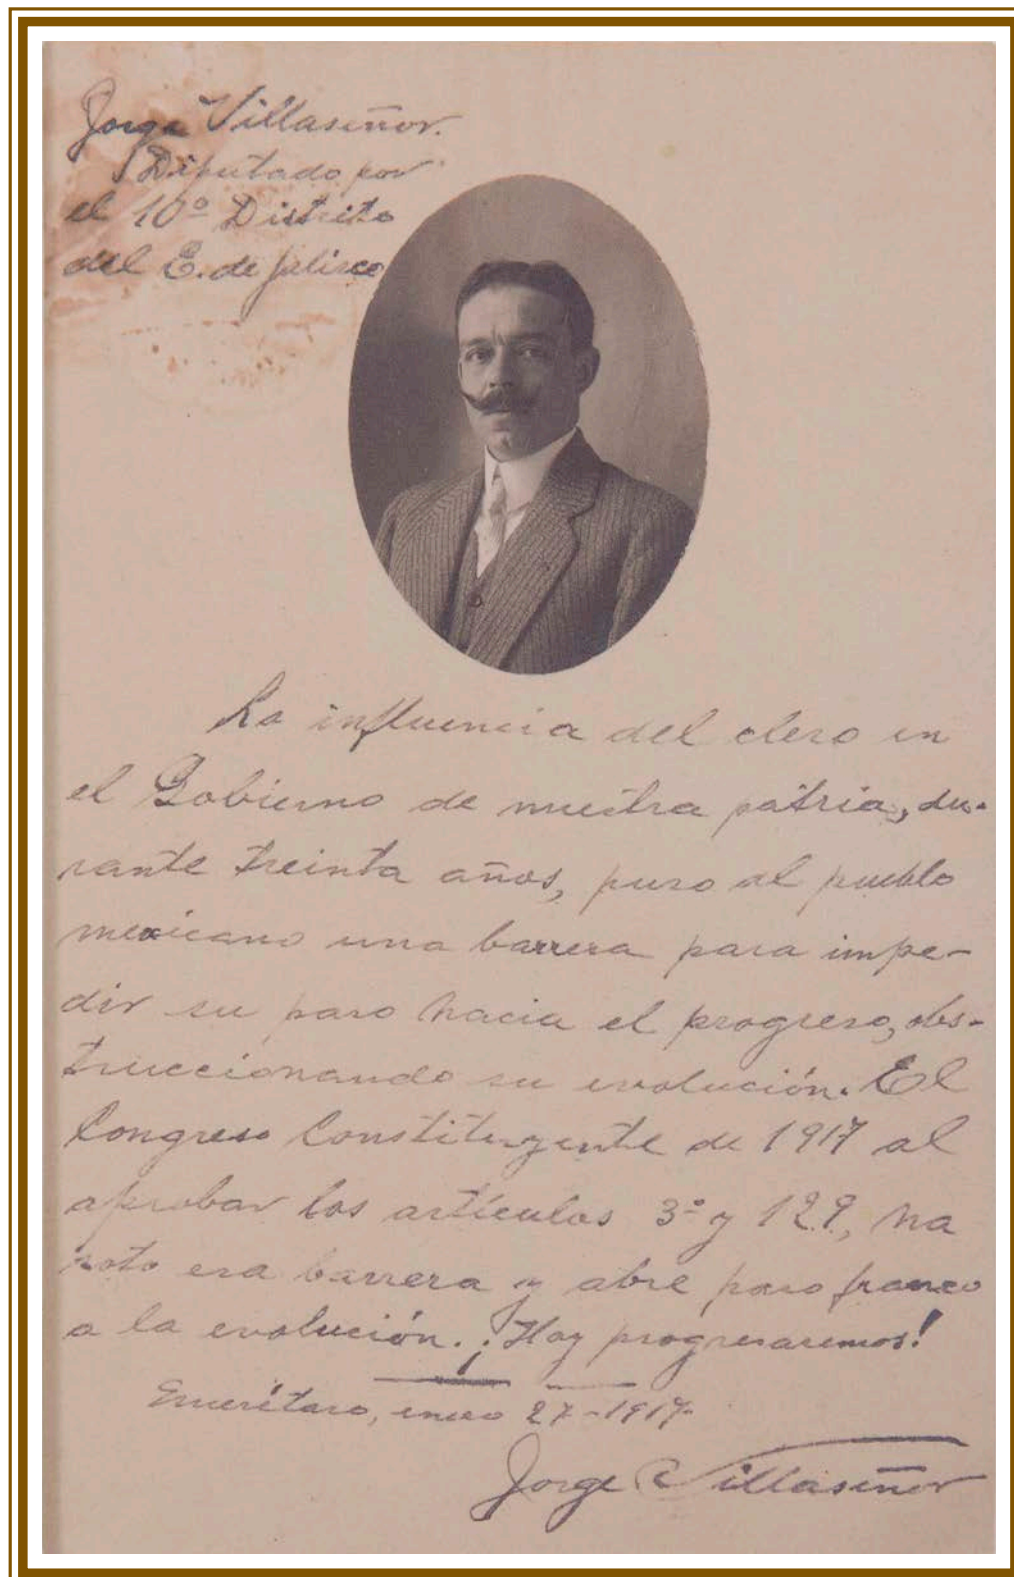 Jorge Villaseñor.
Diputado por
el 10º Distrito
del E. de Jalisco
La influencia del clero en
el Gobierno de nuestra pátria, du-
rante treinta años, puso al pueblo
mexicano una barrera para impe-
dir su paso hacia el progreso, obs-
truccionando su evolución. El
Congreso Constituyente de 1917 al
aprobar los artículos 3º y 129, ha
roto esa barrera y abre paso franco
a la evolución. ¡Hoy progresaremos!
Querétaro, enero 27-1917-
Jorge Villaseñor